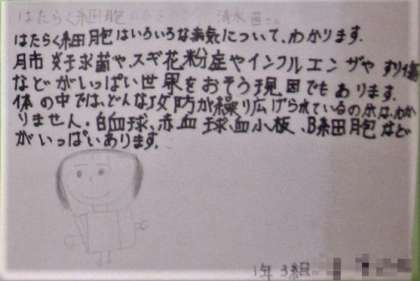 はたらく細胞 清水茜さん
はたらく細胞はいろいろな病気について、わかります。
月市炎球菌やスギ花粉症やインフルエンザや すり傷
などがいっぱい世界をおそう現因でもあります。
体の中では、どんな攻防が繰り広げられているのかは、わか
りません。白血球、赤血球、血小板、B細胞など
がいっぱいあります。
1年 3組